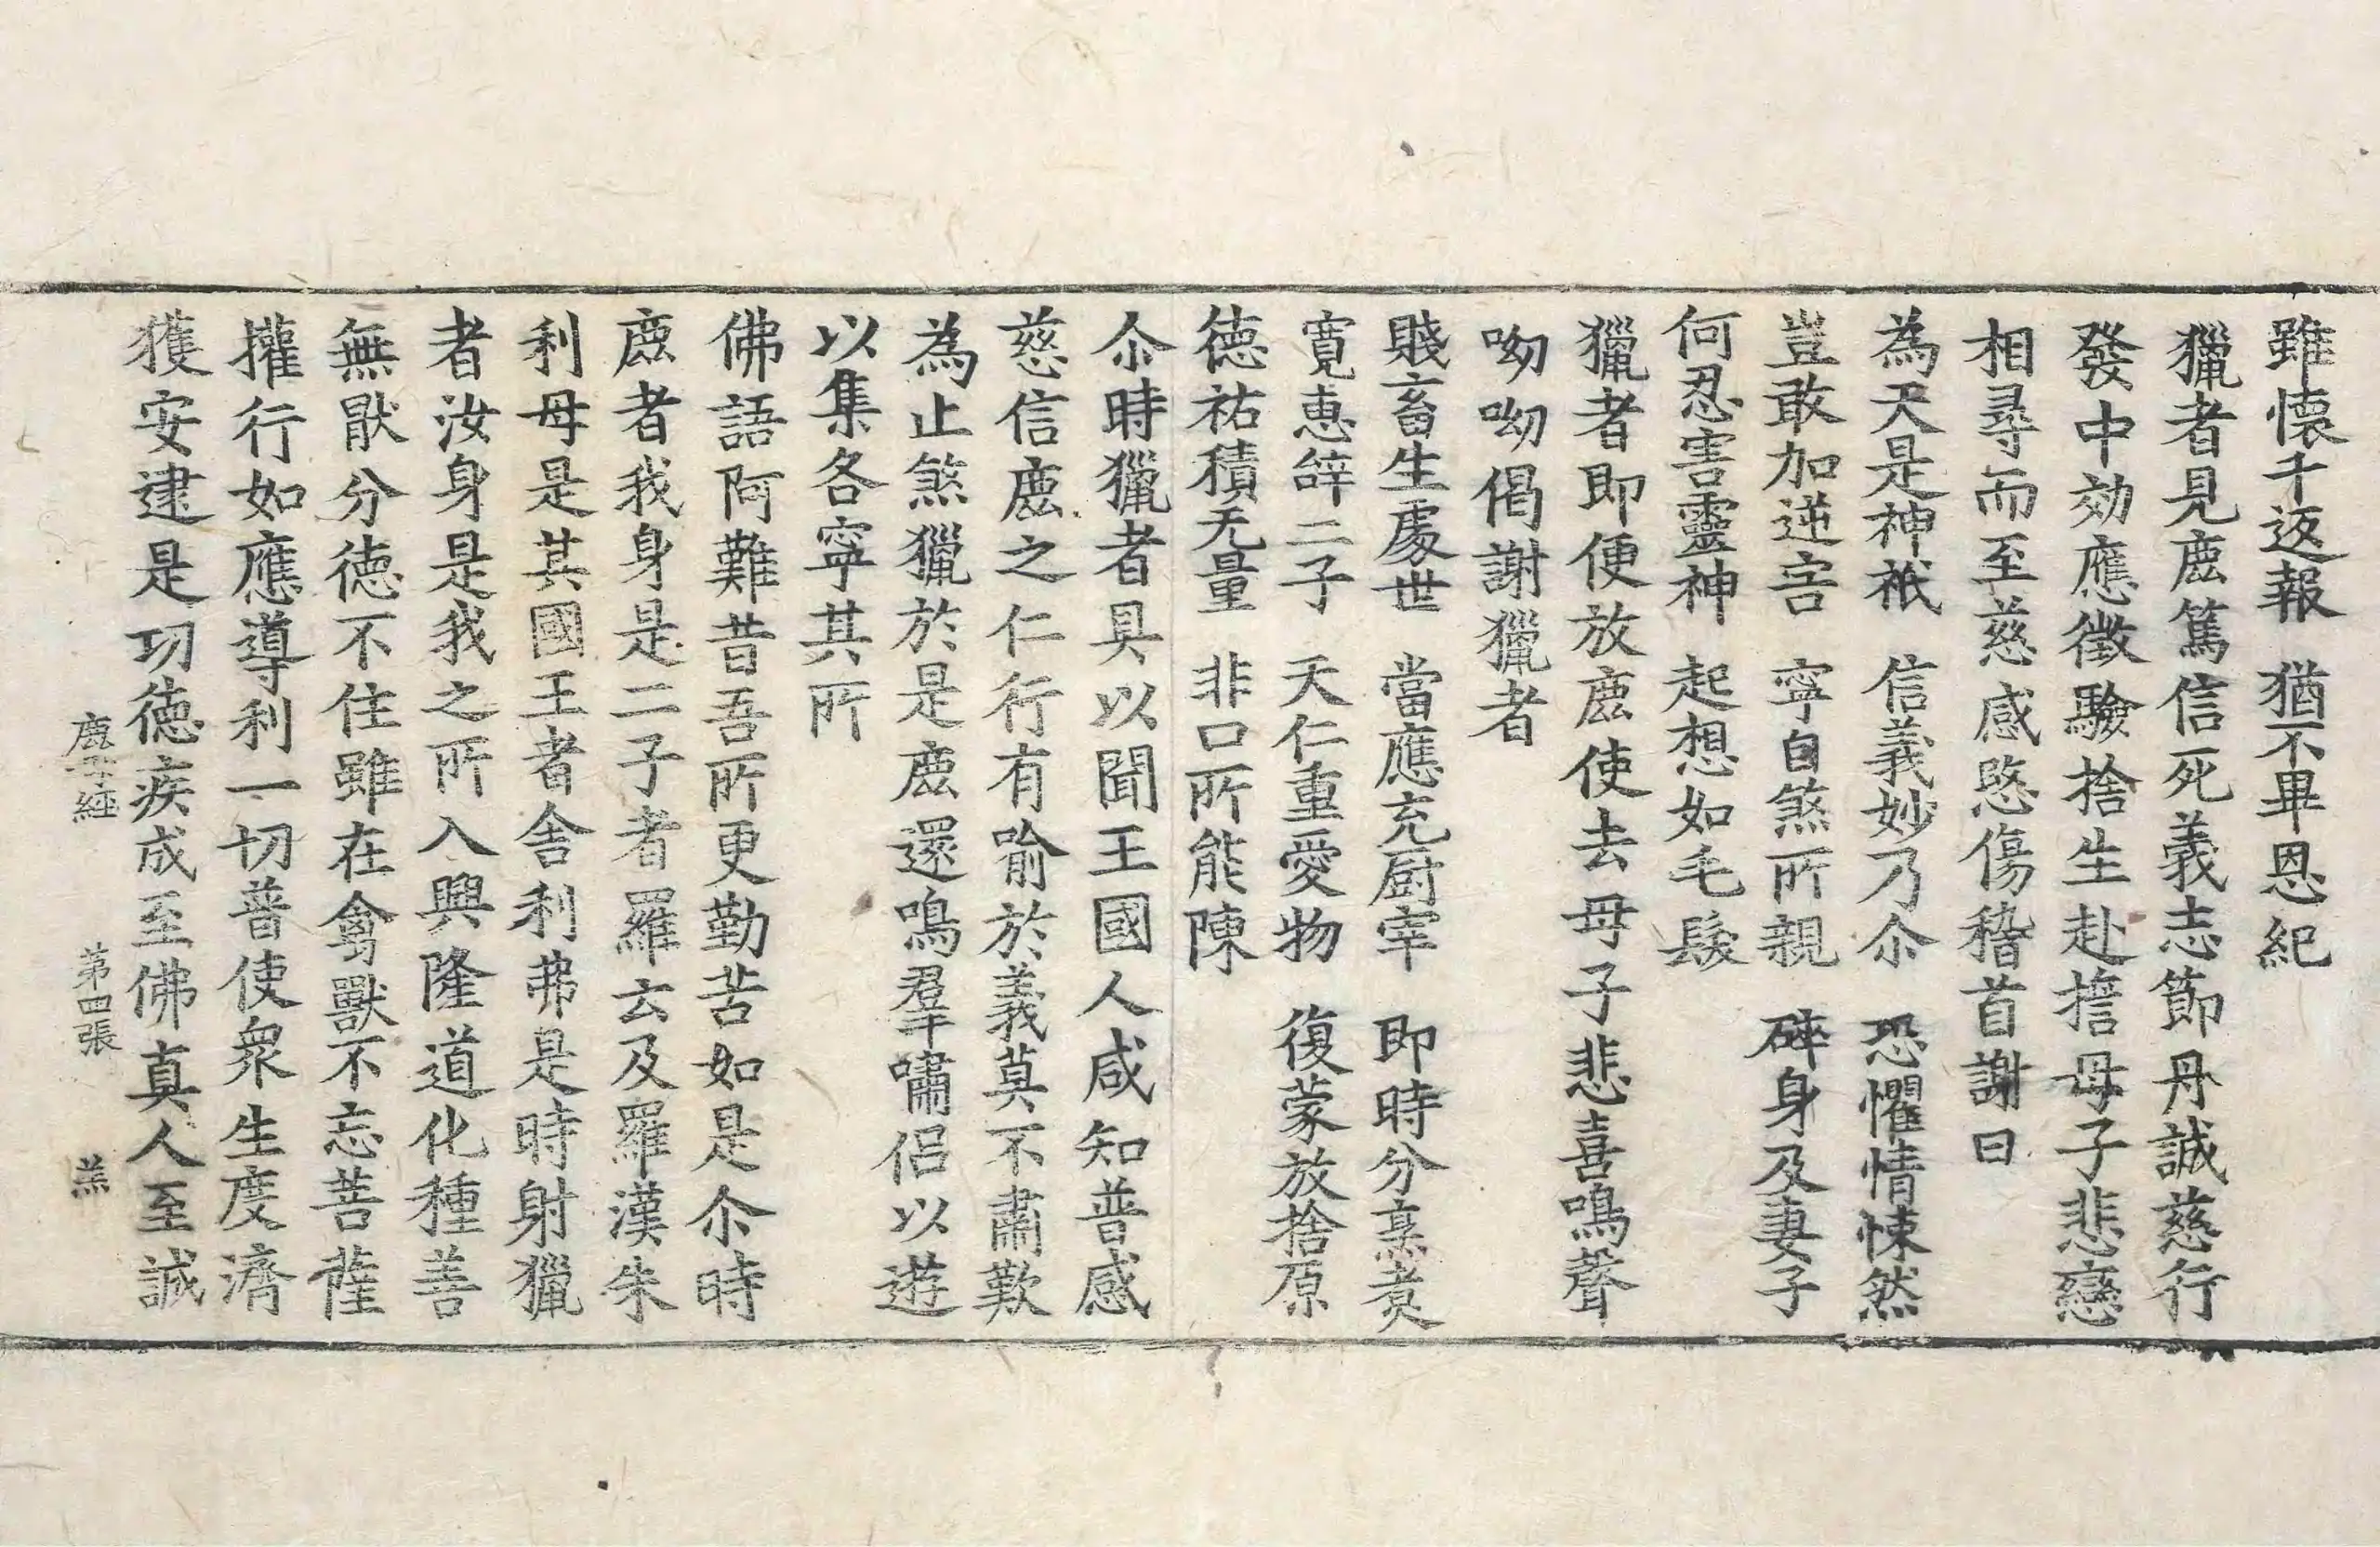 雖懷千返報　猶不畢恩紀
獵者見鹿篤信死義志節丹誠慈行
發中効應徵驗捨生赴擔母子悲戀
相尋而至慈感愍傷稽首謝曰
為天是神祇　信義妙乃尒　恐懼情悚然
豈敢加逆害　寧自煞所親　碎身及妻子
何忍害靈神　起想如毛髮
獵者即便放鹿使去母子悲喜鳴聲
呦呦偈謝獵者
賤畜生處世　當應充厨宰　即時分烹煑
寬恵辝二子　天仁重愛物　復蒙放捨原
徳祐積无量　非口所能陳
尒時獵者具以聞王國人咸知普感
慈信鹿之仁行有喻於義莫不肅歎
為止煞獵於是鹿還鳴羣嘯侣以遊
以集各寧其所
佛語阿難昔吾所更勤苦如是尒時
鹿者我身是二子者羅云及羅漢朱
利母是其國王者舍利弗是時射獵
者汝身是我之所入興隆道化種善
無猒分徳不住雖在禽獸不忘菩薩
攉行如應導利一切普使衆生度濟
獲安逮是功徳疾成至佛真人至誠
鹿子經　第四張　羔